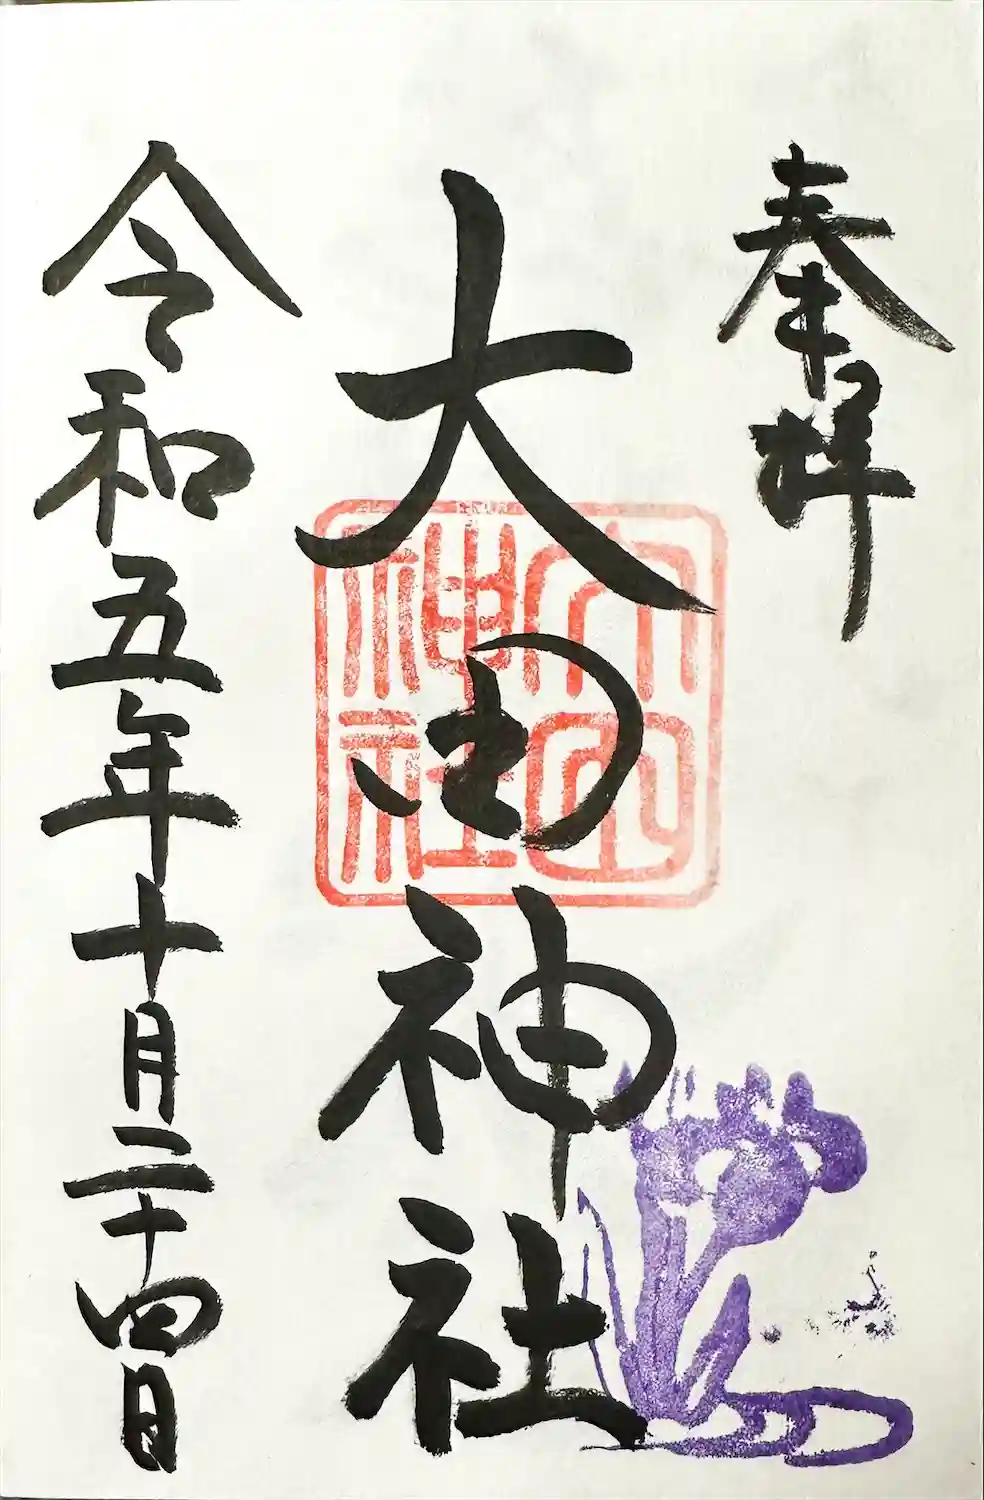 奉拝
大田神社
大田神社
令和五年十月二十四日